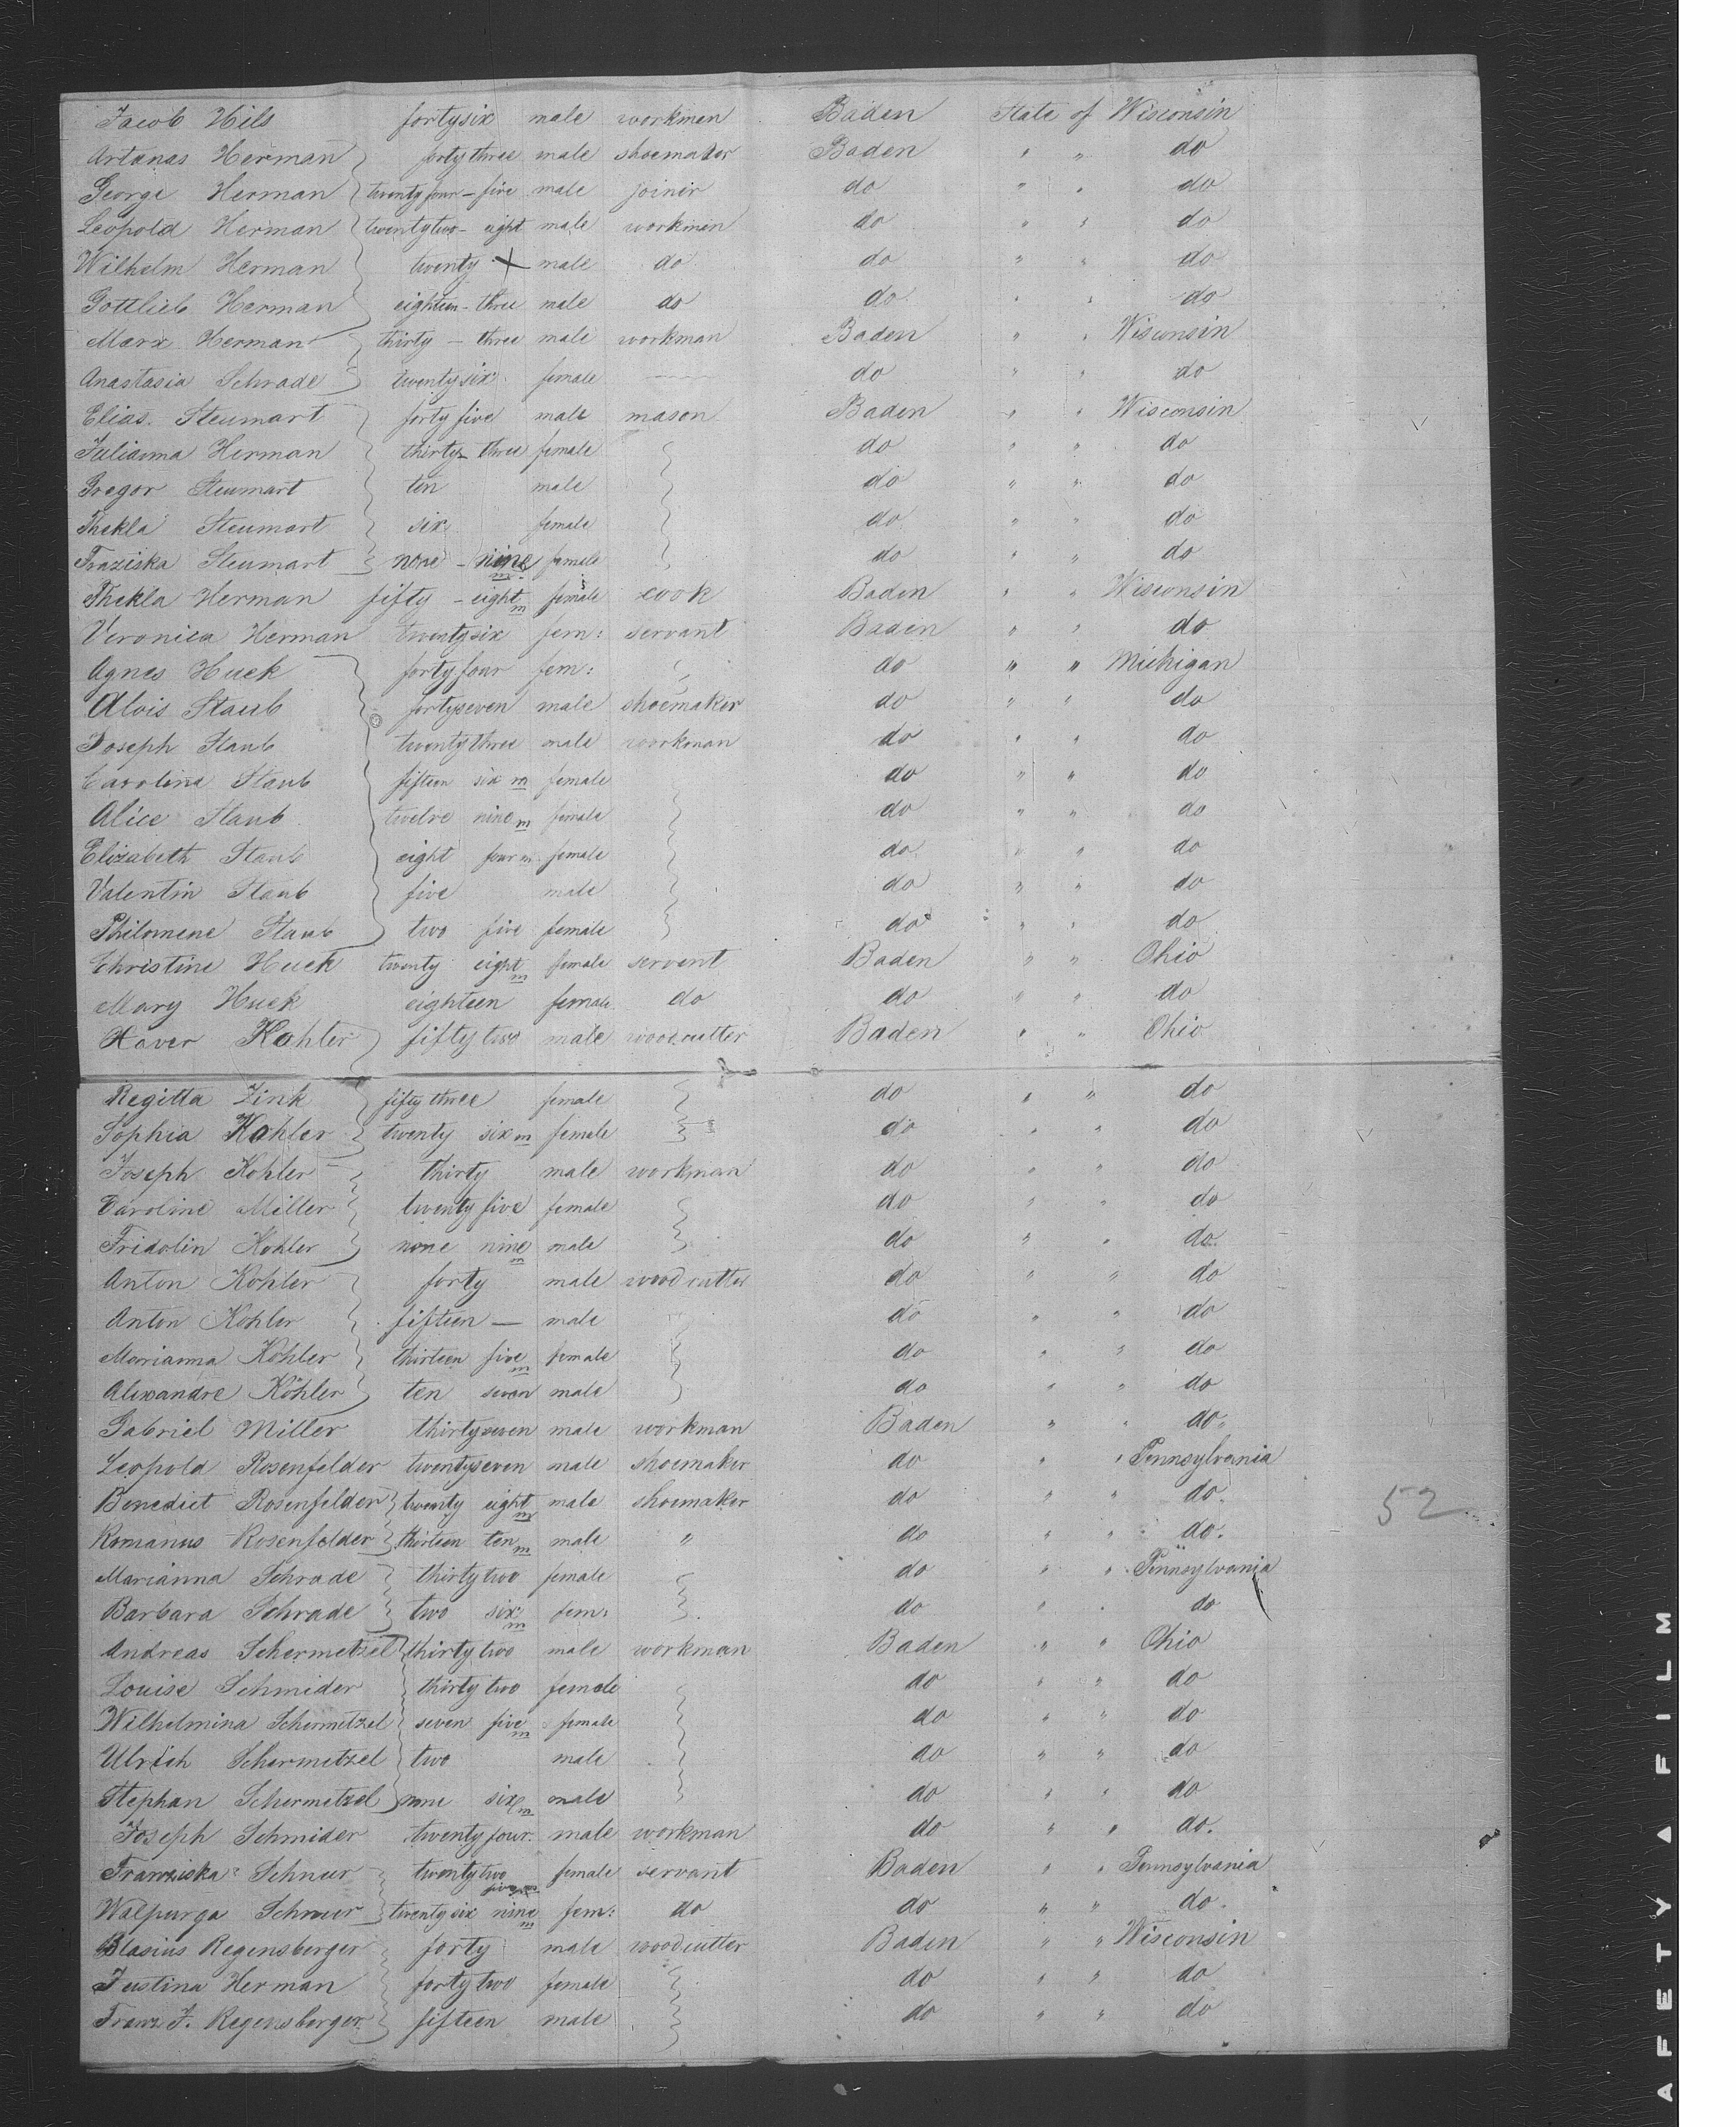 Jacob Hils fortysix male workman Baden State of Wisconsin
Artanas Herman fortythree male shoemaker Baden " " do
George Herman twentyfour - five male joinir do " " do
Leopold Herman twentytwo - eight male workman do " " do
Wilhelm Herman twenty male do do " " do
Gottlieb Herman eighteen - three male do do " " do
Marx Herman thirty - three male workman Baden " " Wisconsin
Anastasia Schrade twentysix female — do " " do
Elias Steumart forty five male mason Baden " " Wisconsin
Julianna Herman thirty - three female do " " do
Gregor Steumart ten male do " " do
Thekla Steumart six female do " " do
Fraziska Steumart none - nine m female do " " do
Thekla Herman fifty - eight m female cook Baden " " Wisconsin
Veronica Herman twentysix fem: servant Baden " " do
Agnes Huck fortyfour fem: do " " Michigan
Alois Staub fortyseven male shoemaker do " " do
Joseph Staub twentythree male workman do " " do
Carolina Staub fifteen six m female do " " do
Alice Staub twelve nine m female do " " do
Elizabeth Staub eight four m female do " " do
Valentin Staub five male do " " do
Philomene Staub two five female do " " do
Christine Huck twenty eight m female servant Baden " " Ohio
Mary Huck eighteen female do do " " do
Xaver Kohler fiftytwo male woodcutter Baden " " Ohio
Regitta Zink fifty three female do " " do
Sophia Kohler twenty six m female do " " do
Joseph Kohler thirty male workman do " " do
Caroline Miller twenty five female do " " do
Fridolin Kohler none nine m male do " " do
Anton Kohler forty male woodcutter do " " do
Anton Kohler fifteen — male do " " do
Marianna Kohler thirteen five m female do " " do
Alexandre Köhler ten seven male do " " do
Gabriel Miller thirtyseven male workman Baden " " do
Leopold Rosenfelder twentyseven male shoemaker do " " Pennsylvania
Benedict Rosenfelder twenty eight m male shoemaker do " " do.
52
Romanus Rosenfelder thirteen ten m male " do " " do.
Marianna Schrade thirtytwo female do " " Pennsylvania
Barbara Schrade two six m fem: do " " do
Andreas Schermetzel thirtytwo male workman Baden " " Ohio
Louise Schmider thirtytwo female do " " do
Wilhelmina Schermetzel seven five m female do " " do
Ulrich Schermetzel two male do " " do
Stephan Schermetzel none six m male do " " do
Joseph Schmider twentyfour male workman do " " do.
Franziska Schnur twentytwo five m female servant Baden " " Pennsylvania
Walpurga Schnur twentysix nine m fem: do do " " do.
Blasius Regensberger forty male woodcutter Baden " " Wisconsin
Justina Herman fortytwo female do " " do
Franz J. Regensberger fifteen male do " " do
AFETY ▲ FILM